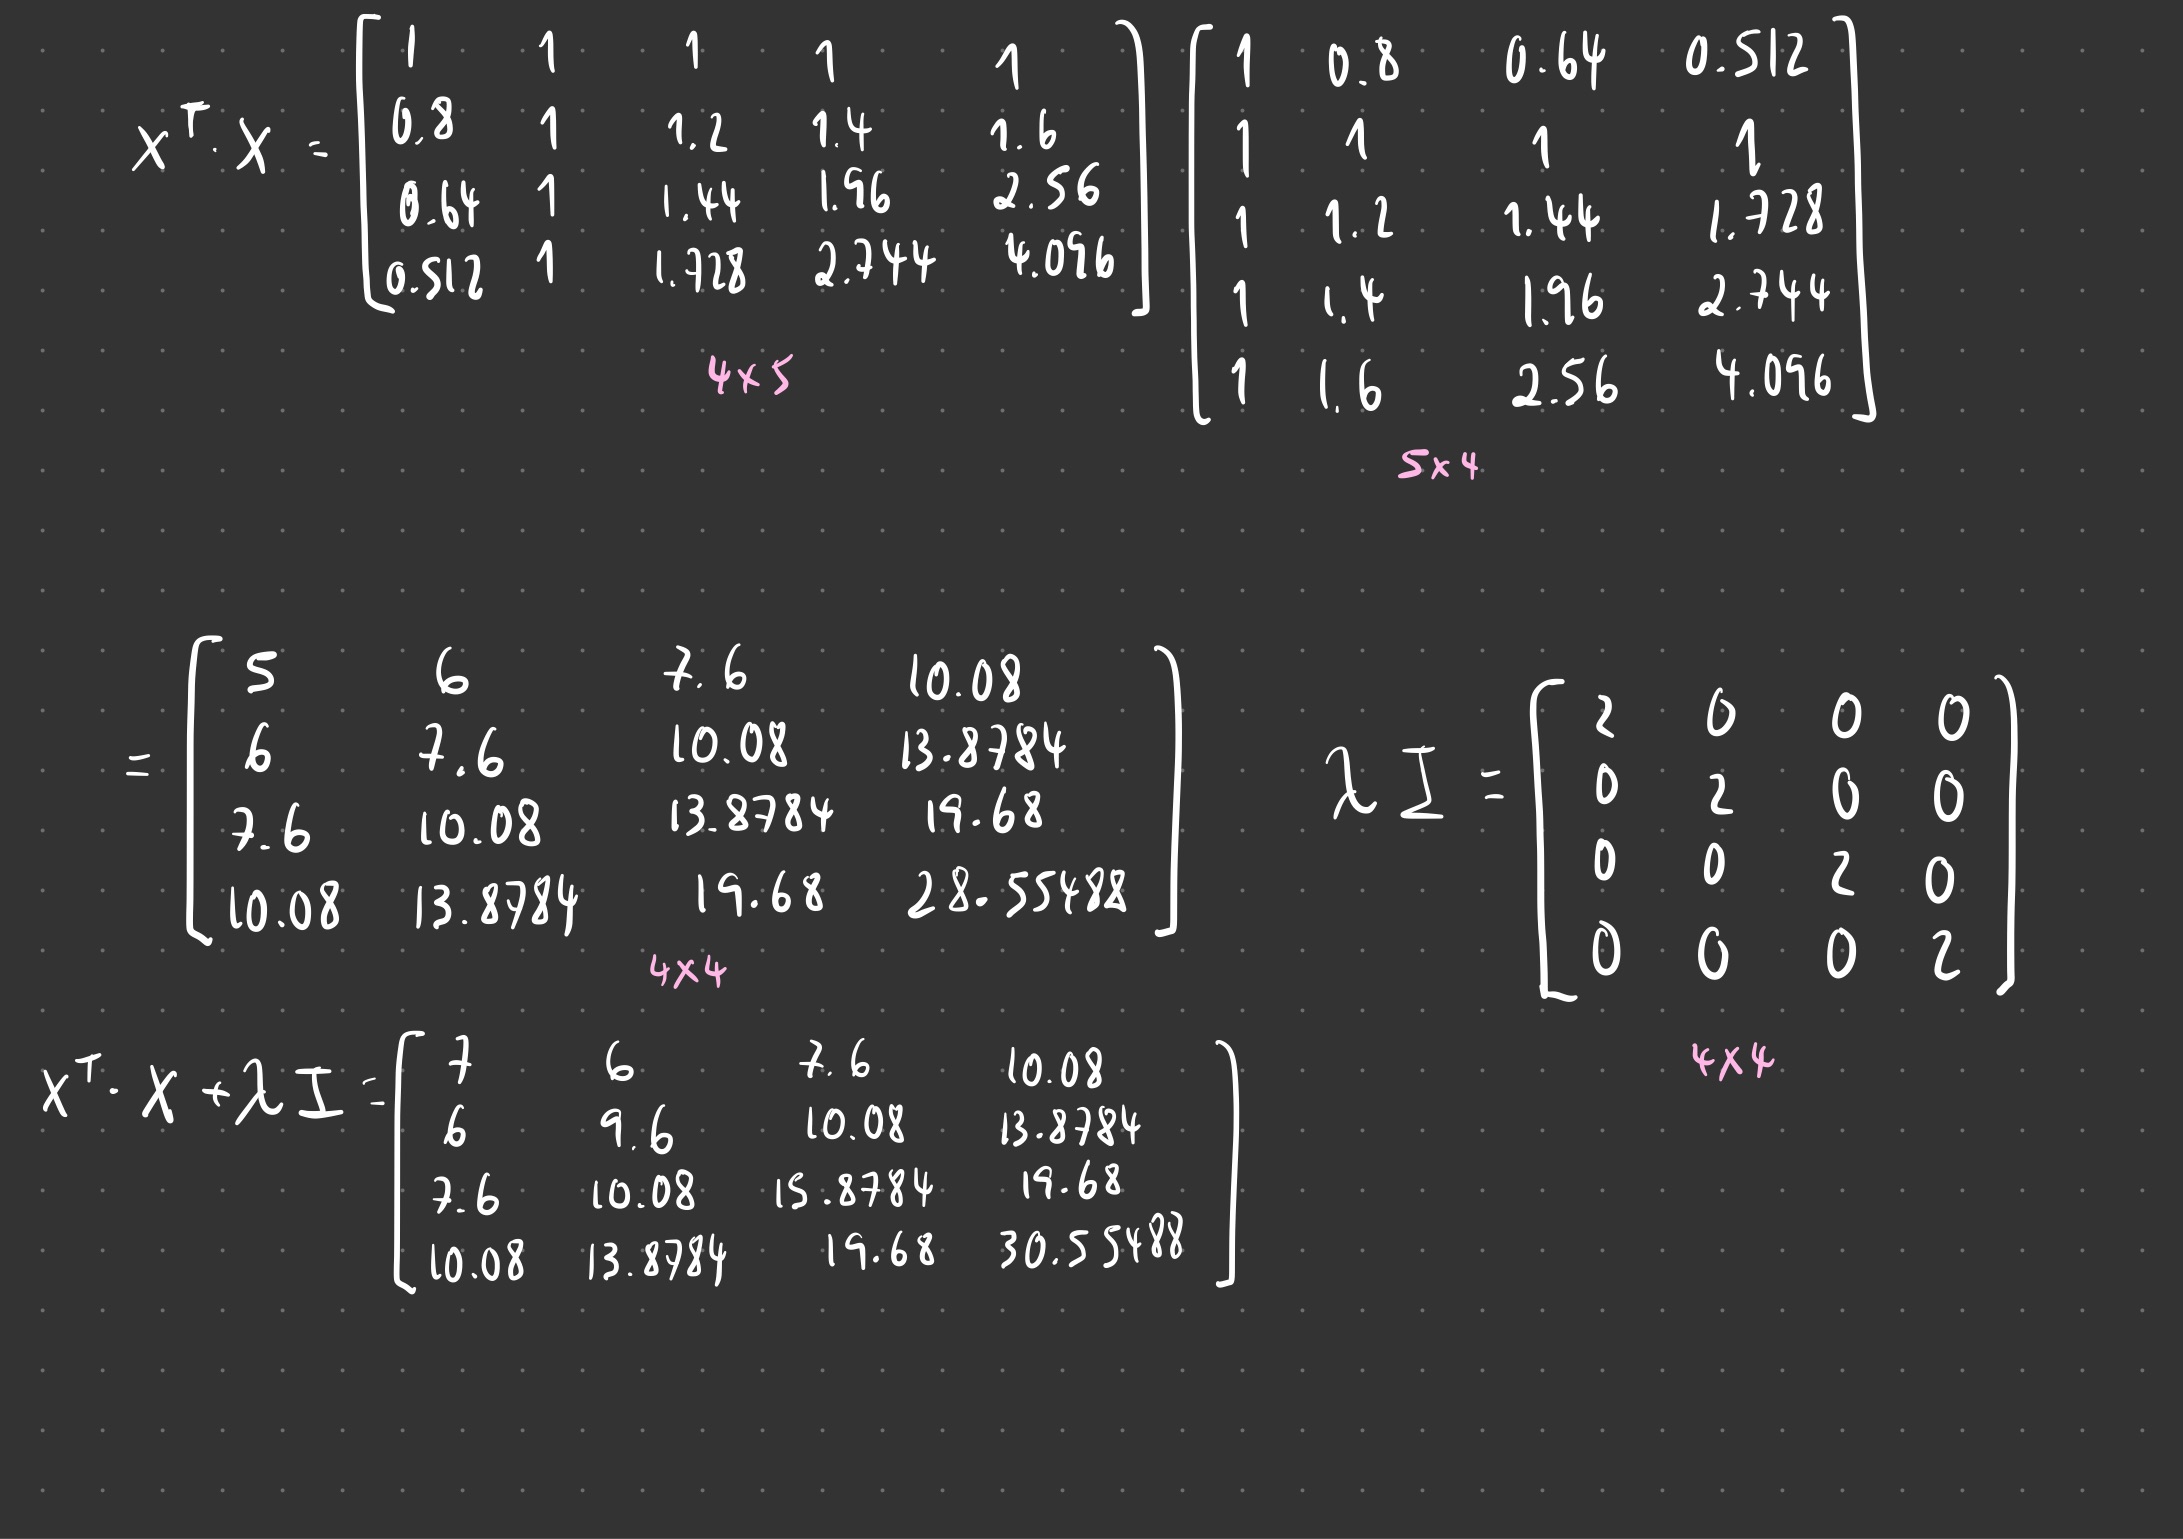 X^T · X = [ 1 1 1 1 1 ] [ 1 0.8 0.64 0.512 ]
[ 0.8 1 1.2 1.4 1.6 ] [ 1 1 1 1 ]
[ 0.64 1 1.44 1.96 2.56 ] [ 1 1.2 1.44 1.728 ]
[ 0.512 1 1.728 2.744 4.096 ] [ 1 1.4 1.96 2.744 ]
[ 1 1.6 2.56 4.096 ]
4×5
5×4
= [ 5 6 7.6 10.08 ]
[ 6 7.6 10.08 13.8784 ]
[ 7.6 10.08 13.8784 19.68 ]
[ 10.08 13.8784 19.68 28.55488 ]
4×4
λI = [ 2 0 0 0 ]
[ 0 2 0 0 ]
[ 0 0 2 0 ]
[ 0 0 0 2 ]
4×4
X^T · X + λI = [ 7 6 7.6 10.08 ]
[ 6 9.6 10.08 13.8784 ]
[ 7.6 10.08 15.8784 19.68 ]
[ 10.08 13.8784 19.68 30.55488 ]